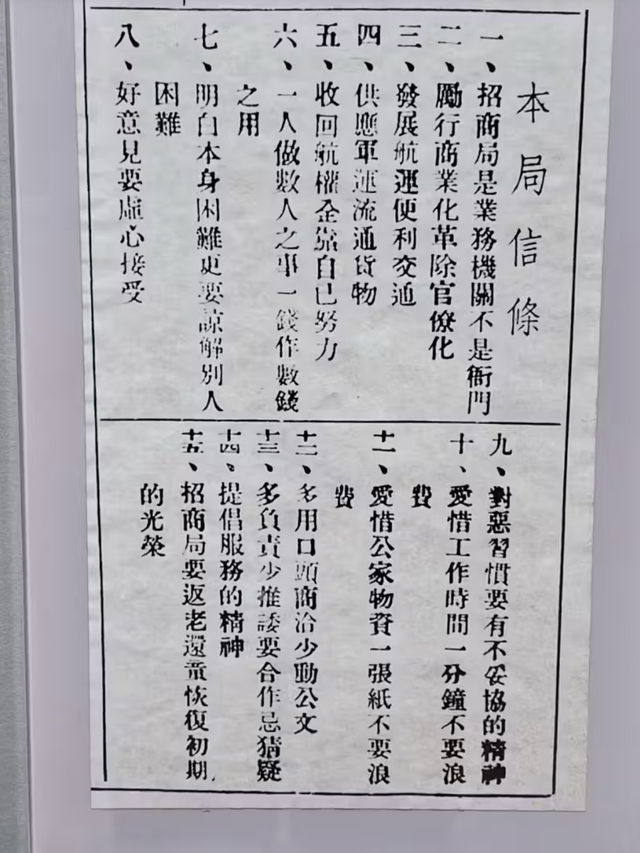 本局信條
一、招商局是業務機關不是衙門
二、勵行商業化革除官僚化
三、發展航運便利交通
四、供應軍運流通貨物
五、收回航權全靠自己努力
六、一人做數人之事一錢作數錢
之用
七、明白本身困難更要諒解別人
困難
八、好意見要虛心接受
九、對惡習慣要有不妥協的精神
十、愛惜工作時間一分鐘不要浪
費
十一、愛惜公家物資一張紙不要浪
費
十二、多用口頭商洽少動公文
十三、多負責少推諉要合作忌猜疑
十四、提倡服務的精神
十五、招商局要返老還童恢復初期
的光榮